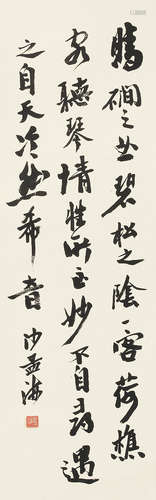 晴磵之曲碧松之陰一客荷樵
一客聽琴情性所至妙不自尋遇
之自天泠然希音 沙孟海